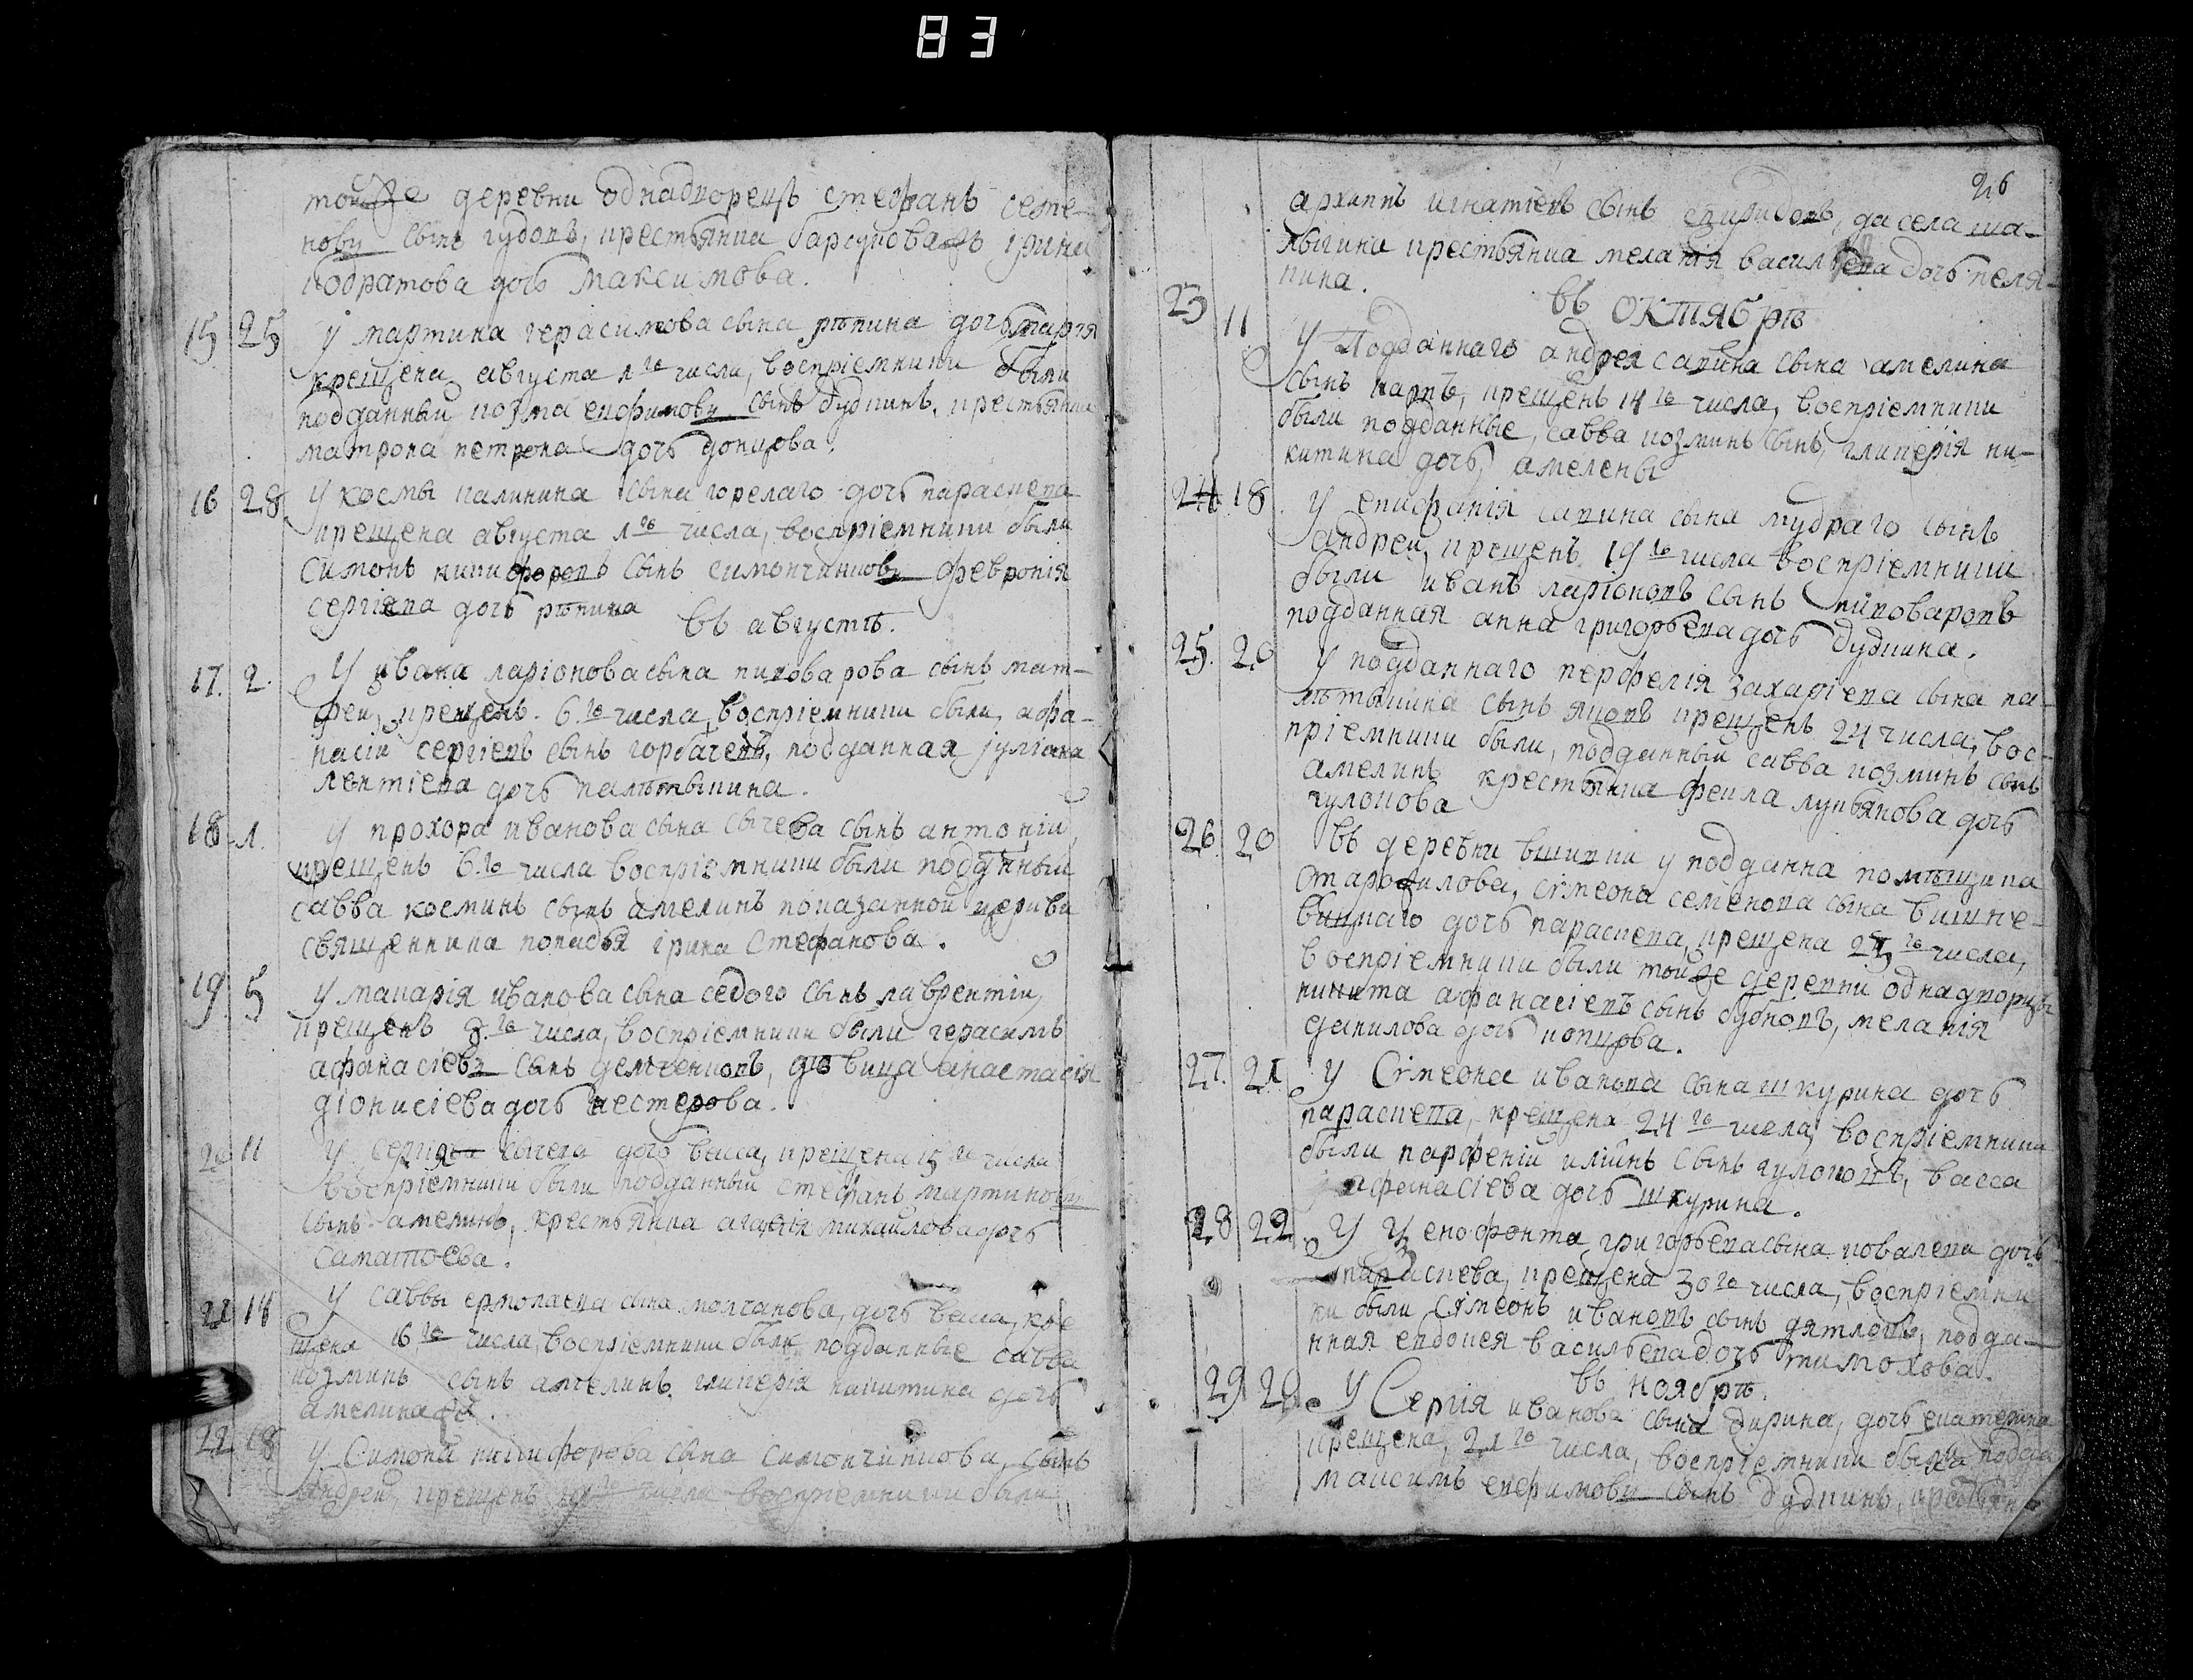 83
тойже деревни однадворецъ стефанъ семе-
новъ сынъ гудовъ, крестьянка барсукова ірина
кодратова дочь максимова.
15 25 У мартина герасимова сына рѣпина дочь марѳа
крещена августа 1го числа, воспріемники были
подданный козма ефимовъ сынъ дудкинъ, крестьянка
матрона петрова дочь донцова.
16 28 У космы калинина сына горелаго дочь параскева
крещена августа 1го числа, воспріемники были
симонъ никифоровъ сынъ симончинковъ февронія
сергіева дочь рѣпина
въ августѣ.
17. 2. У ивана ларіонова сына пивоварова сынъ мат-
фей, крещенъ. 6го числа, воспріемники были, афа-
насій сергіевъ сынъ горбачевъ, подданная іуліана
леонтіева дочь палѣтышина.
18 4. У прохора иванова сына сычева сынъ антоній
крещенъ 6.го числа воспріемники были подданный
савва косминъ сынъ амелинъ показанной церкви
священника попадья ірина стефанова.
19. 5 У макарія иванова сына седого сынъ лаврентій,
крещенъ 8.го числа, воспріемники были герасимъ
афанасіевъ сынъ демченковъ, дѣвица анастасія
діонисіева дочь нестерова.
20 11 У сергія сычева дочь васса, крещена 15го числа
воспріемники были подданный стефанъ мартиновъ
сынъ амелинъ, крестьянка агафія михайлова дочь
саматоева.
21 14 У саввы ермолаева сына молчанова, дочь васса, кре
щена 16го числа, воспріемники были подданные савва
козминъ сынъ амелинъ гликерія никитина дочь
амелина.
22 18 У Симона никифорова сына симончинкова, сынъ
андрей, крещенъ числа воспріемники были
26
архиппъ игнатіевъ сынъ спиридовъ, да села ша-
лыгина крестьянка меланія васильева дочь пеля-
кина.
въ октябрѣ
23 11 У Подданнаго андрея савина сына амелина
сынъ карпъ, крещенъ 14го числа, воспріемники
были подданные, савва козминъ сынъ, гликерія ни-
китина дочь, амелены
24 18. У епифанія савина сына мудраго сынъ
андрей, крещенъ 19го числа воспріемники
были иванъ ларіоновъ сынъ пивоваровъ
подданная анна григорьева дочь дудкина.
25. 20 У подданнаго перфелія захаріева сына па-
лѣтышина сынъ яковъ крещенъ 24 числа, вос-
пріемники были, подданный савва козминъ сынъ
амелинъ крестьянка фекла лукьянова дочь
гулокова
26. 20 въ деревни вшивки у подданна помѣщика
стромилова, сѵмеона семенова сына вишне-
вицкаго дочь параскева, крещена 25го числа,
воспріемники были тойже деревни однадворцы
никита афанасіевъ сынъ бубновъ, меланія
данилова дочь копцова.
27. 21 У Сѵмеона иванова сына шкурина дочь
параскева, крещена 24го числа, воспріемники
были парфеній илӣинъ сынъ гулоковъ, васса
афанасіева дочь шкурина.
28 22. У ѯенофонта григорьева сына ковалева дочь
параскева, крещена 30го числа, воспріемни
ки были сѵмеонъ ивановъ сынъ дятловъ, подда-
нная евдокея васильева дочь тимохова.
въ ноябрѣ.
29 20. У Сергія иванова сына дирина, дочь екатерина
крещена, 21го числа, воспріемники были подда
максимъ ефимовъ сынъ дудкинъ, крестьян